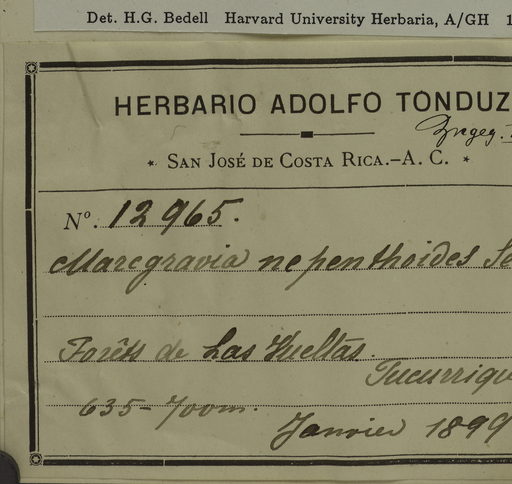 Det. H.G. Bedell Harvard University Herbaria, A/GH 1
HERBARIO ADOLFO TONDUZ
* SAN JOSÉ DE COSTA RICA.–A. C. *
Nº. 12965.
Marcgravia nepenthoides Se
Forêts de Las Vueltas.
Tucurriqu
635–700m.
Janvier 1899